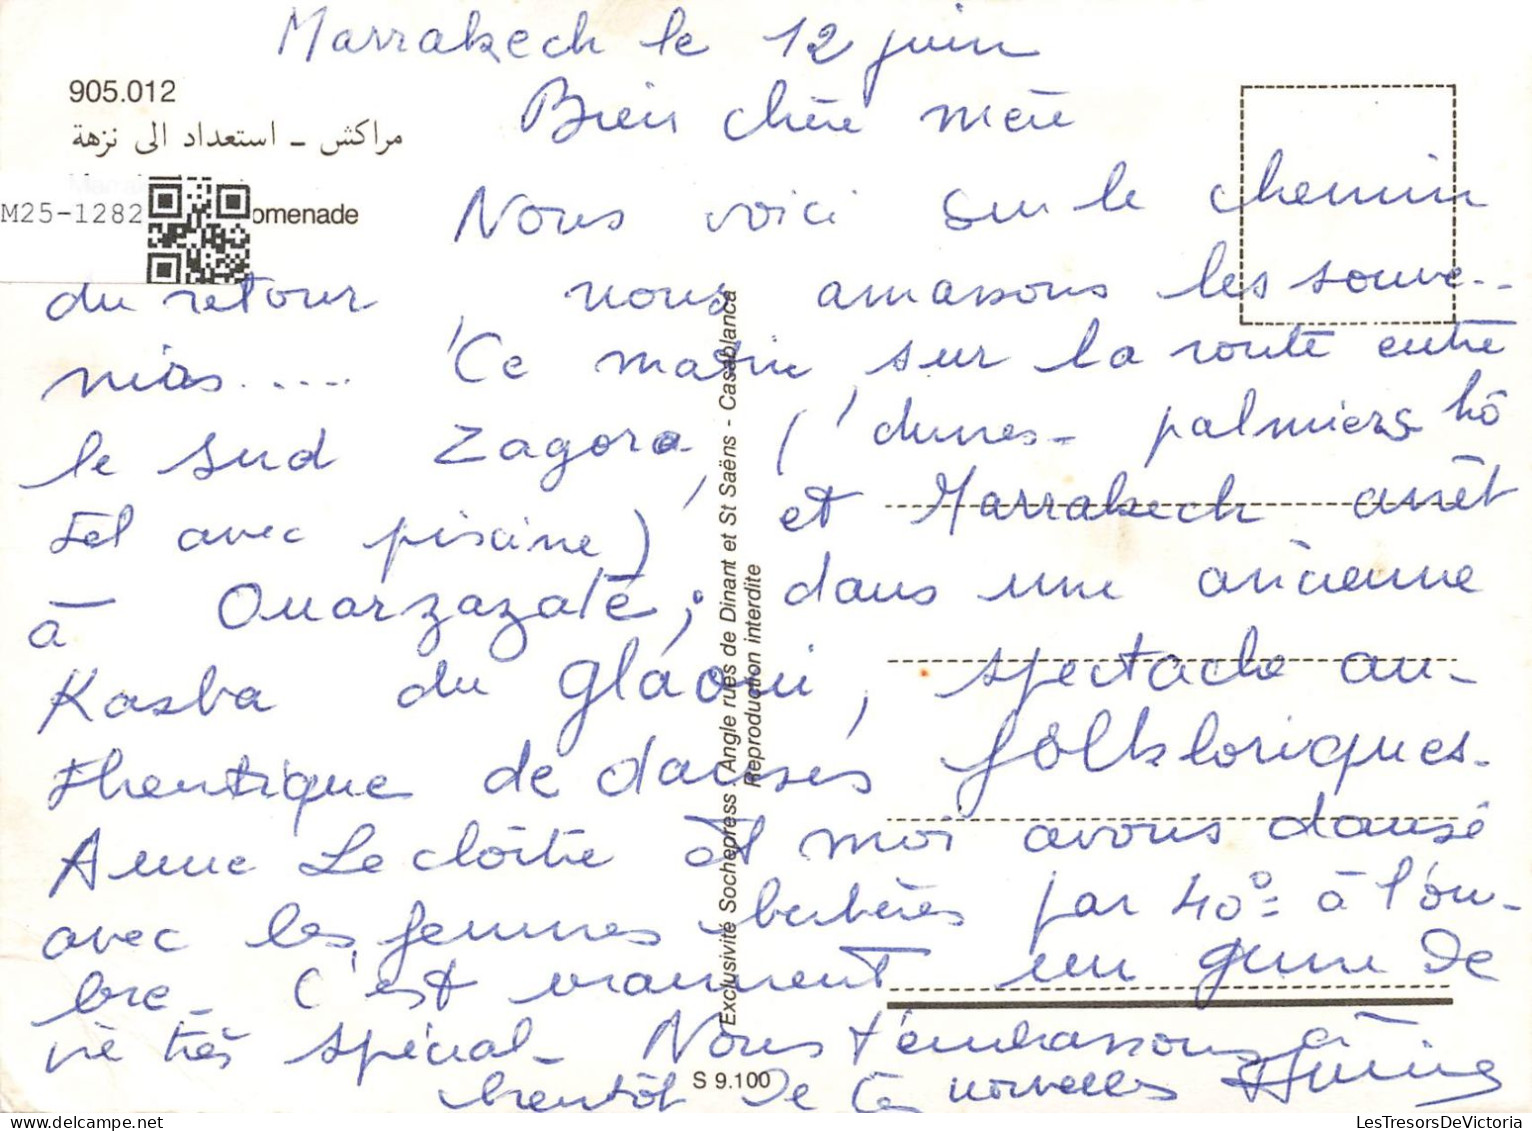 Marrakech le 12 juin
905.012
Bien chère mère
مراكش ـ استعداد الى نزهة
M25-1282
omenade
Nous voici sur le chemin
du retour, nous amassons les souve-
nirs..... Ce matin, sur la route entre
le sud Zagora, (dunes - palmiers hô
tel avec piscine) et Marrakech arrêt
à Ouarzazate, dans une ancienne
Kasba du glaoui, spectacle au-
thentique de danses folkloriques.
Anne Lecloître et moi avons dansé
avec les femmes berbères par 40° à l'om-
bre. C'est vraiment un genre de
vie très spécial. Nous t'embrassons à
bientôt de tes nouvelles
Exclusivité Sochepress : Angle rues de Dinant et St Saëns - Casablanca
Reproduction interdite
S 9.100
LesTresorsDeVictoria